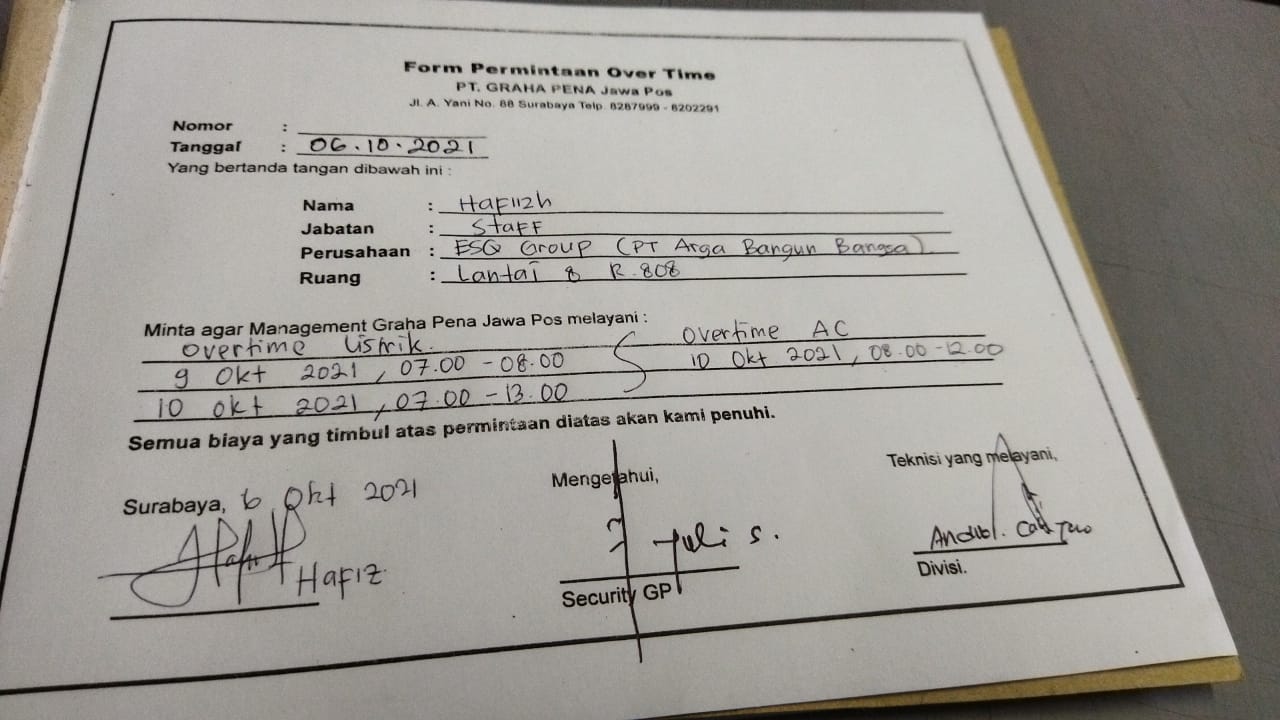 Form Permintaan Over Time
PT. GRAHA PENA Jawa Pos
Jl. A. Yani No. 88 Surabaya Telp. 8287999 - 8202291
Nomor :
Tanggal : 06.10.2021
Yang bertanda tangan dibawah ini :
Nama : Hafiizh
Jabatan : Staff
Perusahaan : ESQ Group (PT Arga Bangun Bangsa)
Ruang : Lantai 8 R.808
Minta agar Management Graha Pena Jawa Pos melayani :
Overtime Listrik.
9 Okt 2021, 07.00 - 08.00
10 Okt 2021, 07.00 - 13.00
Overtime AC
10 Okt 2021, 08.00 - 12.00
Semua biaya yang timbul atas permintaan diatas akan kami penuhi.
Surabaya, 6 Okt 2021
Hafiz
Mengetahui,
Yuli S.
Security GP
Teknisi yang melayani,
Divisi.